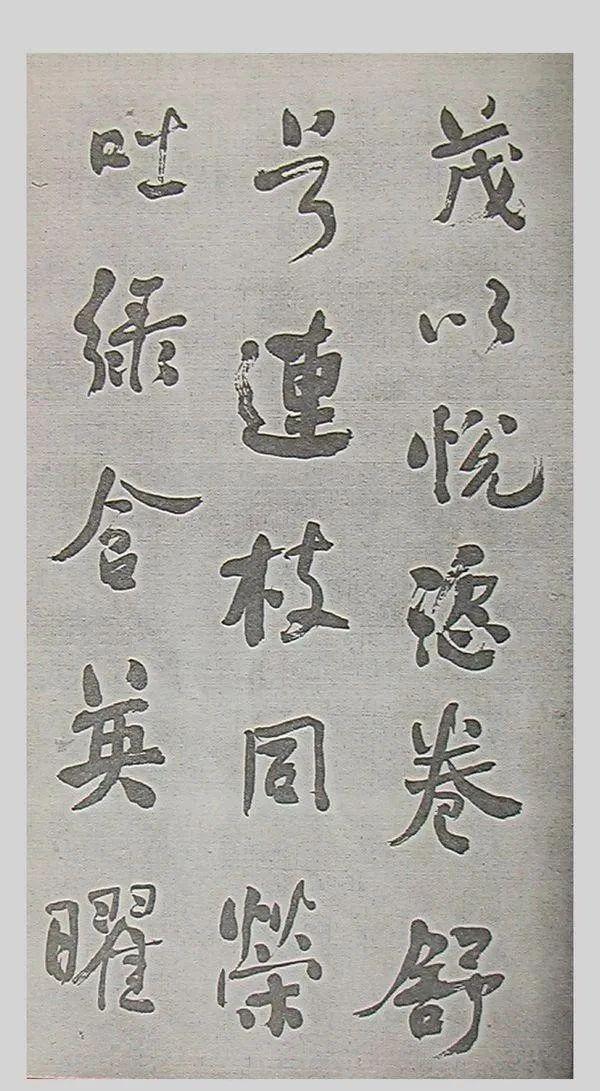 茂以悅恣卷舒
兮連枝同榮
吐綠含英曜